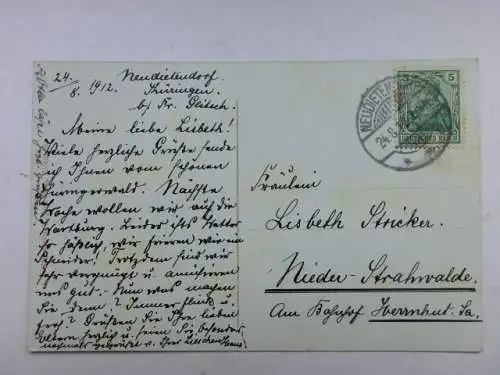 24.
8. 1912.
Neudietendorf.
Thüringen.
b/ Fr. Glitsch.
Meine liebe Lisbeth!
Viele herzliche Grüße sende
ich Ihnen vom schönen
Thüringerwald. Nächste
Woche wollen wir auf die
Wartburg. Leider ists Wetter
so häßlich, wir frieren wie ein
Schneider! Trotzdem sind wir
sehr vergnügt u. amüsieren
uns gut. Nun was machen
Sie denn? Immer fleißig u.
Grüßen Sie Ihre lieben
Eltern herzlich u. seien Sie besonders
nochmals gegrüßt v. Ihrer
5
DEUTSCHES REICH
NEUDIETEN
24.8
Fräulein
Lisbeth Stricker.
Nieder-Strahwalde.
Am Bahnhof Herrnhut. Sa.